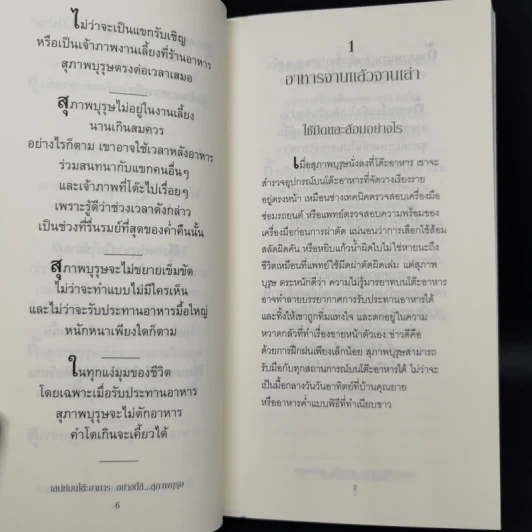 ไม่ว่าจะเป็นแขกรับเชิญ
หรือเป็นเจ้าภาพงานเลี้ยงที่ร้านอาหาร
สุภาพบุรุษตรงต่อเวลาเสมอ
สุภาพบุรุษไม่อยู่ในงานเลี้ยง
นานเกินสมควร
อย่างไรก็ตาม เขาอาจใช้เวลาหลังอาหาร
ร่วมสนทนากับแขกคนอื่นๆ
และเจ้าภาพที่โต๊ะไปเรื่อยๆ
เพราะรู้ดีว่าช่วงเวลาดังกล่าว
เป็นช่วงที่รื่นรมย์ที่สุดของค่ำคืนนั้น
สุภาพบุรุษจะไม่ขยายเข็มขัด
ไม่ว่าจะทำแบบไม่มีใครเห็น
และไม่ว่าจะรับประทานอาหารมื้อใหญ่
หนักหนาเพียงใดก็ตาม
ในทุกแง่มุมของชีวิต
โดยเฉพาะเมื่อรับประทานอาหาร
สุภาพบุรุษจะไม่ตักอาหาร
คำโตเกินจะเคี้ยวได้
เสน่ห์บนโต๊ะอาหาร อย่างนี้สิ...สุภาพบุรุษ
6
1
อาหารจานแล้วจานเล่า
ใช้มีดและส้อมอย่างไร
เมื่อสุภาพบุรุษนั่งลงที่โต๊ะอาหาร เขาจะ
สำรวจอุปกรณ์บนโต๊ะอาหารที่จัดวางเรียงราย
อยู่ตรงหน้า เหมือนช่างเทคนิคตรวจสอบเครื่องมือ
ซ่อมรถยนต์ หรือแพทย์ตรวจสอบความพร้อมของ
เครื่องมือก่อนการผ่าตัด แน่นอนว่าการเลือกใช้ส้อม
สลัดผิดคัน หรือหยิบแก้วน้ำผิดใบไม่ใช่หายนะถึง
ชีวิตเหมือนที่แพทย์ใช้มีดผ่าตัดผิดเล่ม แต่สุภาพ
บุรุษ ตระหนักดีว่า ความไม่รู้มารยาทบนโต๊ะอาหาร
อาจทำลายบรรยากาศการรับประทานอาหารได้
และทิ้งให้เขาถูกทิ่มแทงใจ และตกอยู่ในความ
หวาดกลัวที่ทำเรื่องขายหน้าตัวเอง ข่าวดีก็คือ
ด้วยการฝึกฝนเพียงเล็กน้อย สุภาพบุรุษสามารถ
รับมือกับทุกสถานการณ์บนโต๊ะอาหารได้ ไม่ว่าจะ
เป็นมื้อกลางวันวันอาทิตย์ที่บ้านคุณยาย
หรืออาหารค่ำแบบพิธีที่ทำเนียบขาว
7